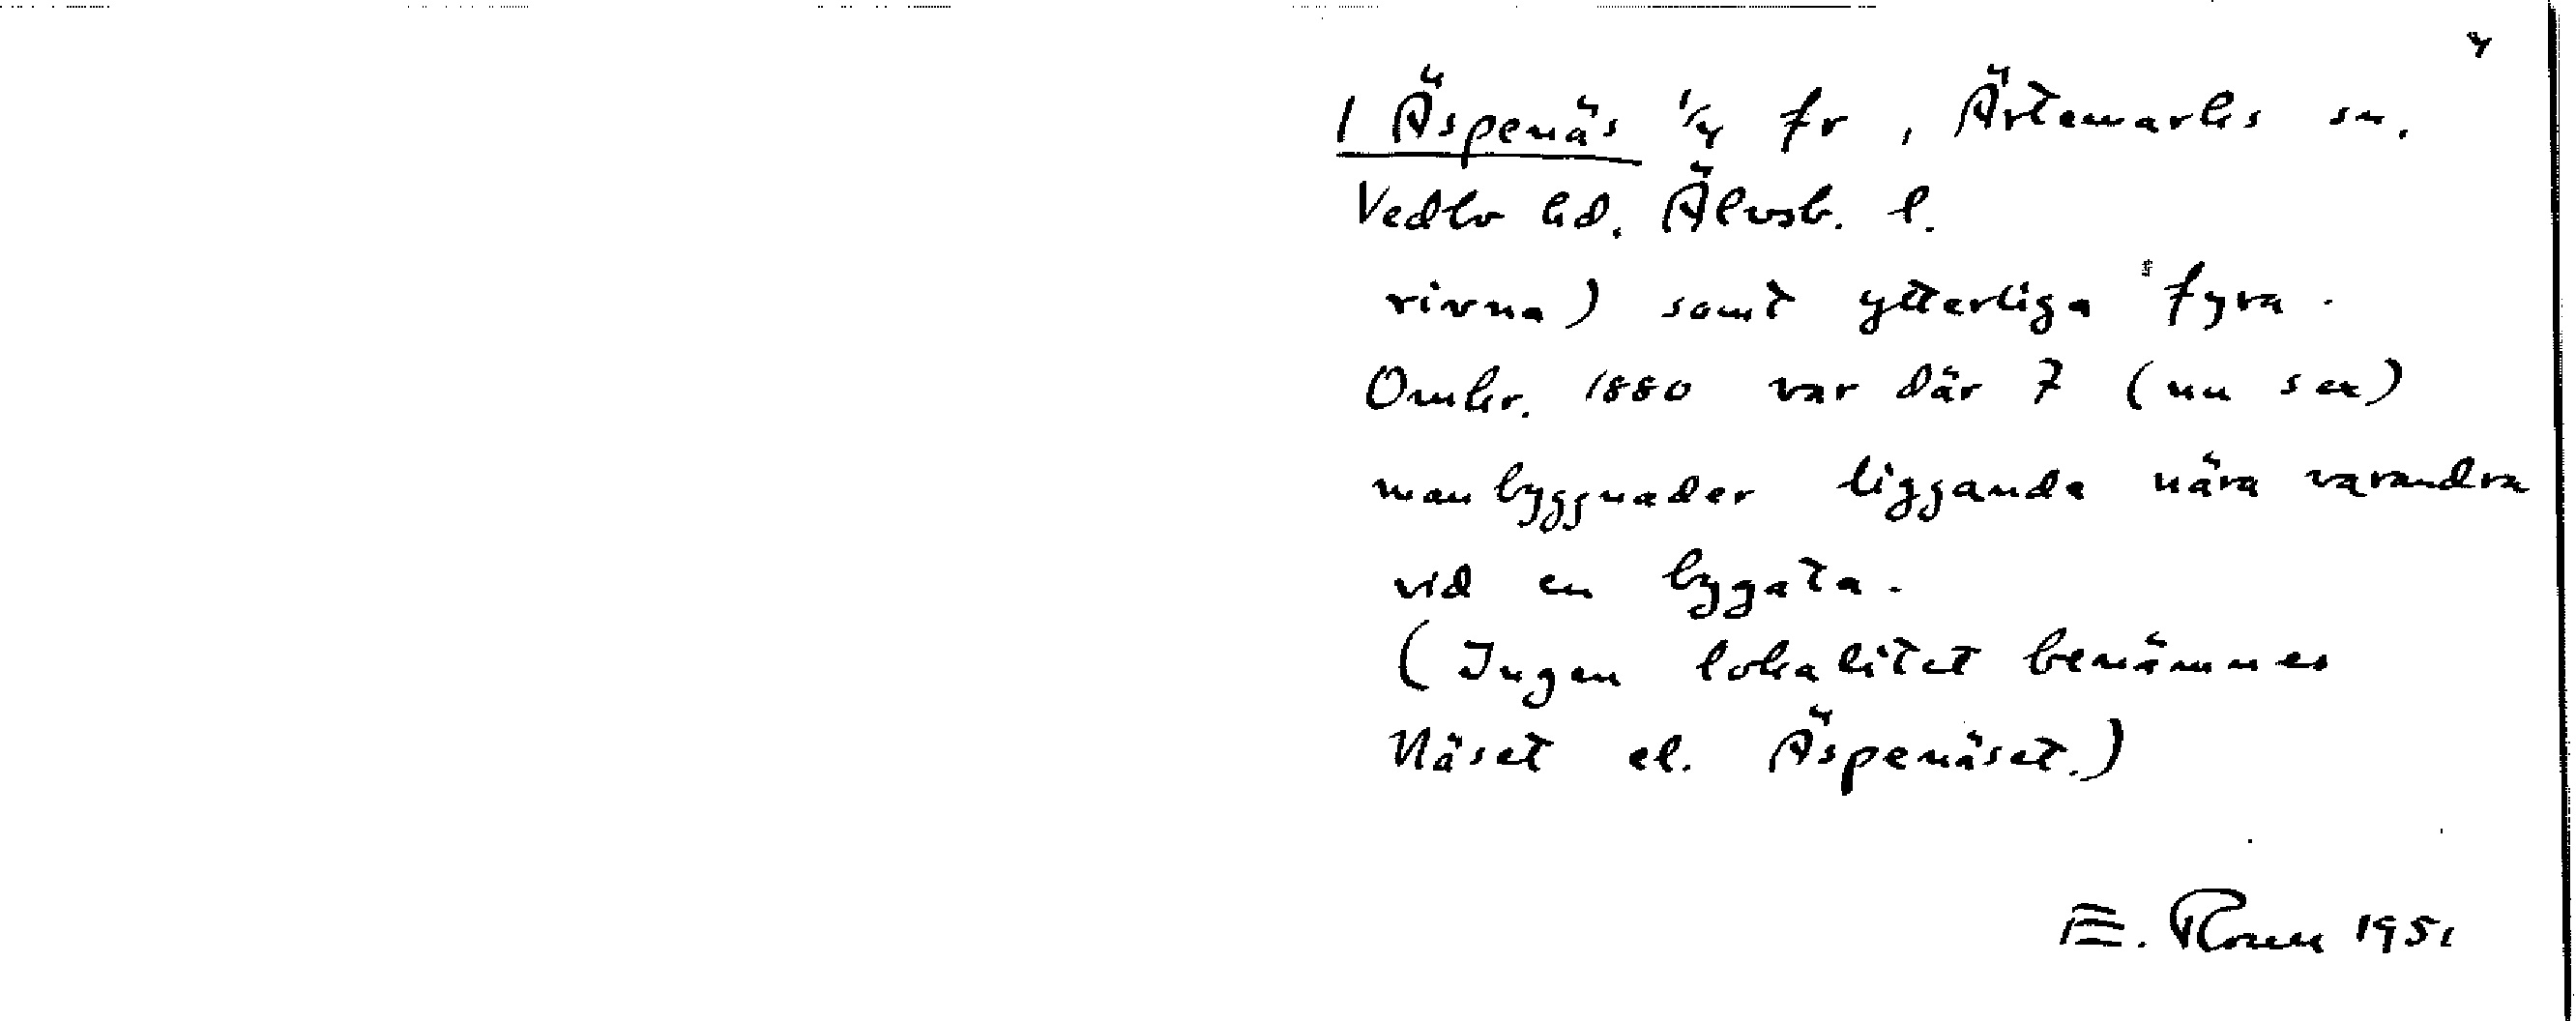 4
1 Äspenäs 1/4 fr, Ärtemarks sn.
Vedbo hd. Älvsb. l.
rivna) samt ytterliga fyra.
Omkr. 1880 var där 7 (nu sex)
manbyggnader liggande nära varandra
vid en bygata.
(Ingen lokalitet benämnes
Näset el. Äspenäset.)
E. Rosen 1951